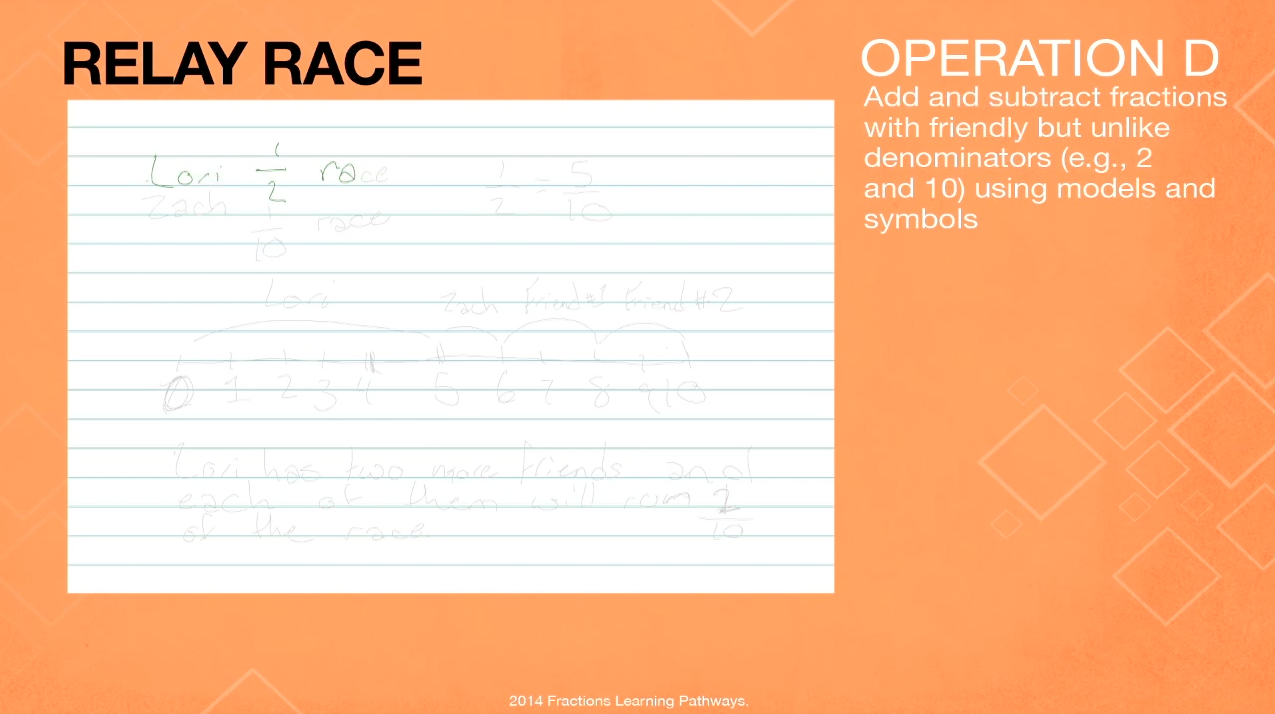 RELAY RACE
Lori 1/2 race
1/2 = 5/10
Zach 1/10 race
Lori Zach Friend #1 Friend #2
0 1 2 3 4 5 6 7 8 9 10
Lori has two more friends and
each of them will run 2/10
of the race.
OPERATION D
Add and subtract fractions
with friendly but unlike
denominators (e.g., 2
and 10) using models and
symbols
2014 Fractions Learning Pathways.